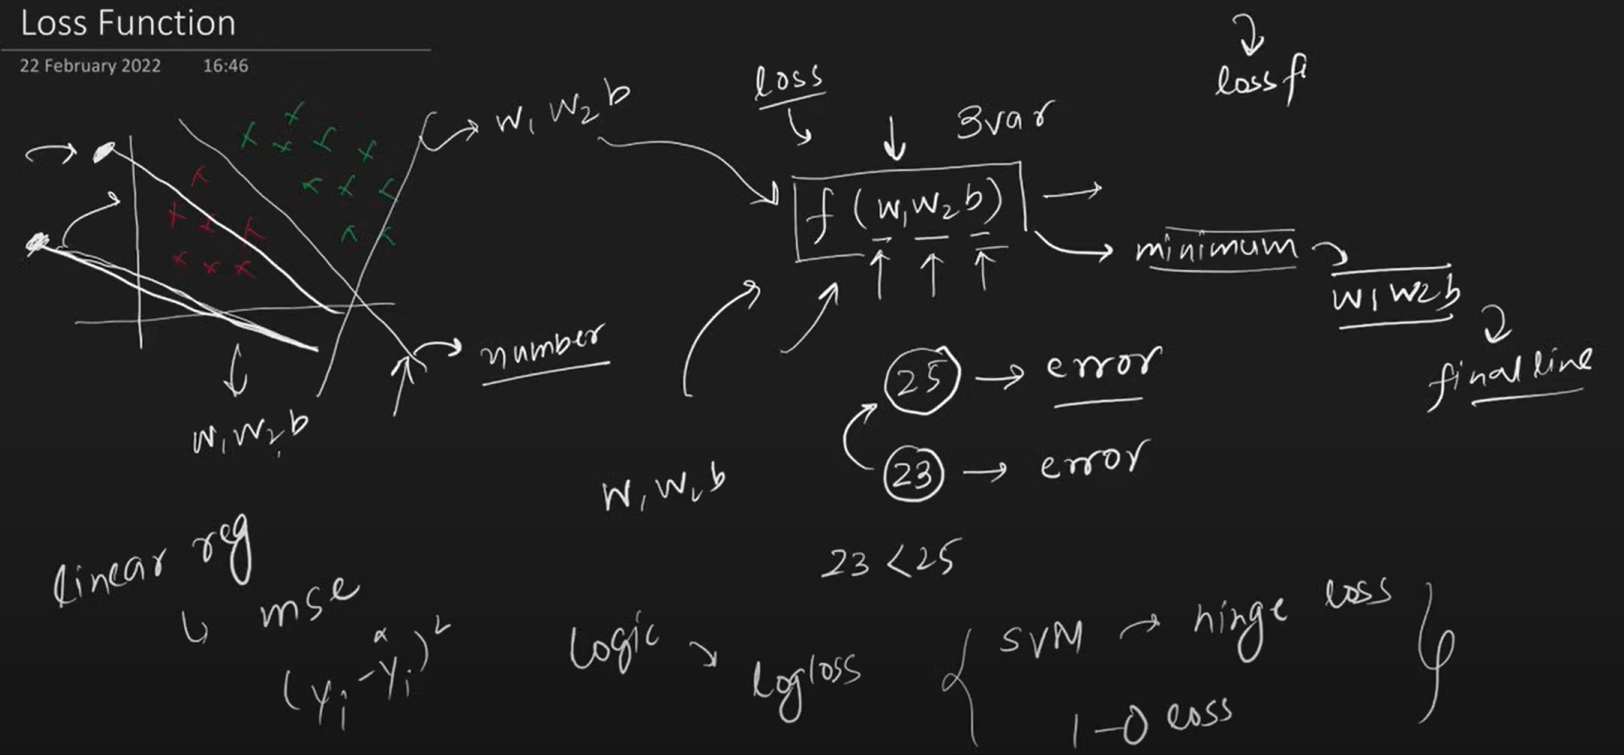 Loss Function
22 February 2022 16:46
loss f
loss
3var
w1 w2 b
f (w1 w2 b)
minimum
w1 w2 b
number
final line
25 → error
w1 w2 b
23 → error
w1 w2 b
23 < 25
linear reg
mse
(yi - ŷi)²
Logic
logloss
SVM → hinge loss
1-0 loss